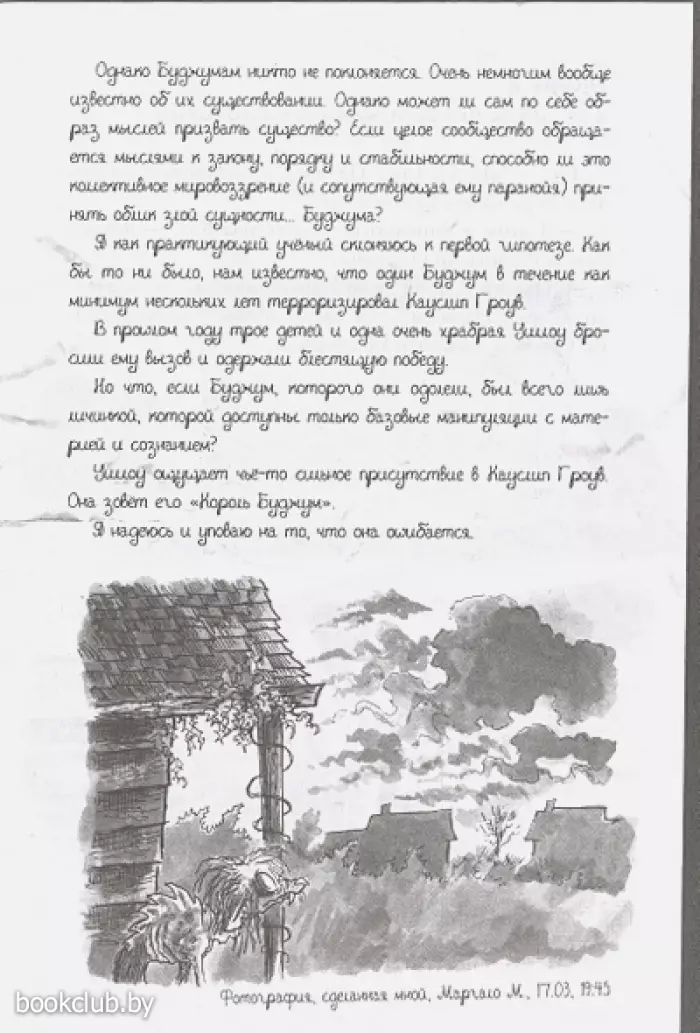 Однако Буджумам никто не поклоняется. Очень немногим вообще
известно об их существовании. Однако может ли сам по себе об-
раз мыслей призвать существо? Если целое сообщество обраща-
ется мыслями к закону, порядку и стабильности, способно ли это
коллективное мировоззрение (и сопутствующая ему паранойя) при-
нять облик злой сущности... Буджума?
Я как практикующий учёный склоняюсь к первой гипотезе. Как
бы то ни было, нам известно, что один Буджум в течение как
минимум нескольких лет терроризировал Кауслип Гроув.
В прошлом году трое детей и одна очень храбрая Уишоу бро-
сили ему вызов и одержали блестящую победу.
Но что, если Буджум, которого они одолели, был всего лишь
личинкой, которой доступны только базовые манипуляции с мате-
рией и сознанием?
Уишоу ощущает чьё-то сильное присутствие в Кауслип Гроув.
Она зовёт его «Король Буджум».
Я надеюсь и уповаю на то, что она ошибается.
Фотография, сделанная мной, Маргало М., 17.03, 19:45
bookclub.by